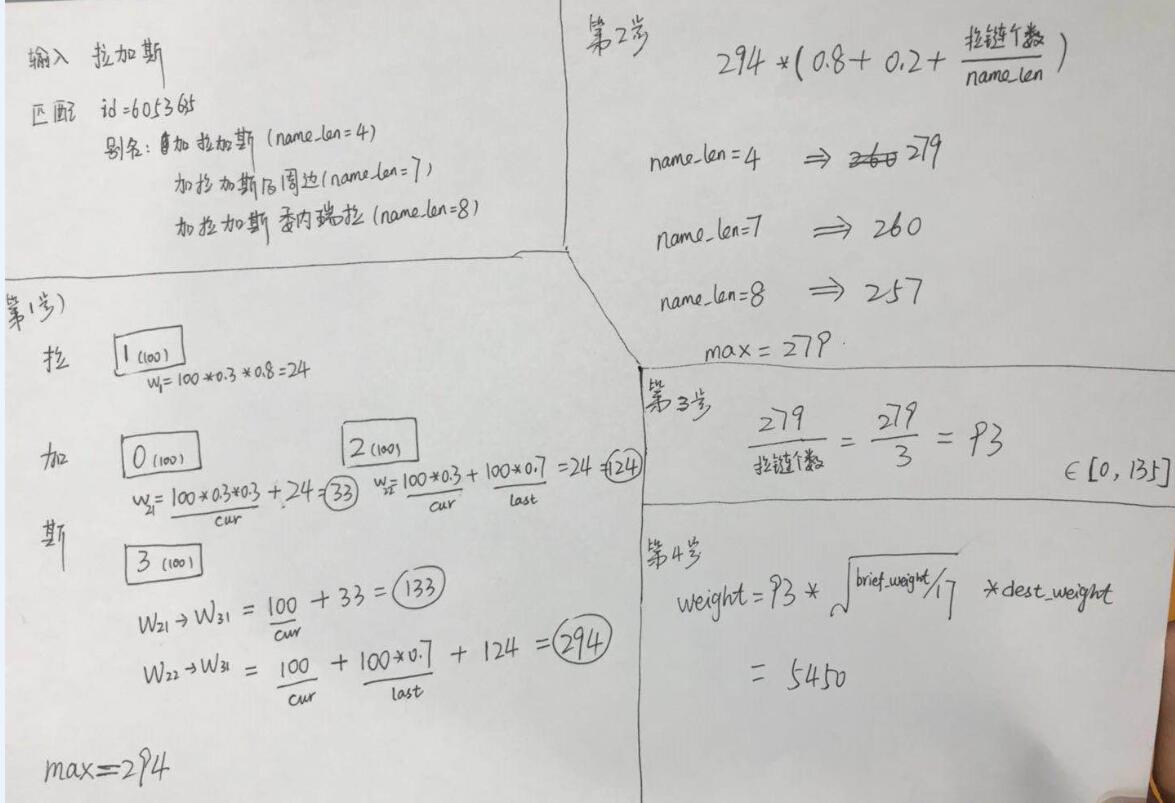 输入 拉加斯
匹配 id=605365
别名: 加拉加斯 (name_len=4)
加拉加斯及周边(name_len=7)
加拉加斯委内瑞拉(name_len=8)
第1步)
拉 1 (100)
w₁=100*0.3*0.8=24
加 0 (100) 2 (100)
w₂₁=100*0.3*0.3+24=33 w₂₂=100*0.3+100*0.7=24=124
cur cur last
斯
3 (100)
W₂₁→W₃₁=100+33=133
cur
W₂₂→W₃₁=100+100*0.7+124=294
cur last
max=294
第2步
294*(0.8+0.2+拉链个数/name_len)
name_len=4 ⇒ 260 279
name_len=7 ⇒ 260
name_len=8 ⇒ 257
max=279.
第3步
279/拉链个数=279/3=93
∈[0,135]
第4步
weight=93*√brief_weight/17 *dest_weight
=5450